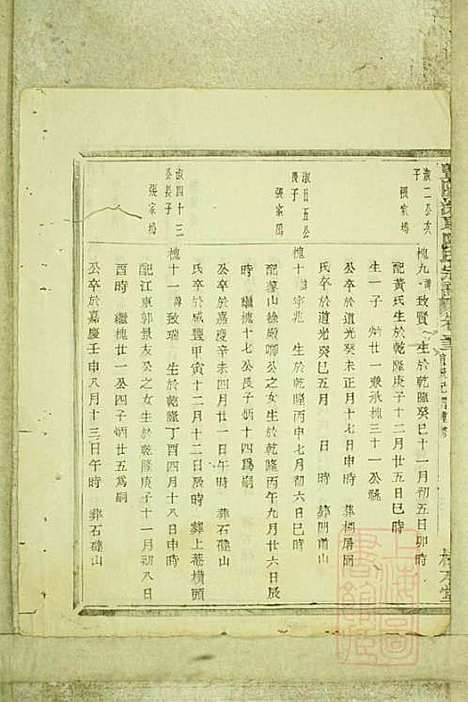 淑二公次子 張家塢
槐九 諱致賢 生於乾隆癸巳十一月初五日卯時
配黃氏生於乾隆庚子十二月廿五日巳時
生一子 炳廿一兼承槐三十一公繼
公卒於道光癸未正月十七日申時 葬橫屠
氏卒於道光癸巳五月 日 時 葬 山
淑廿五公長子 張家塢
槐十 諱宗 生於乾隆丙申七月初六日巳時
配 山徐 公之女生於乾隆丙午九月廿六日辰
時 繼槐十七公長子炳十四爲嗣
公卒於嘉慶辛未四月廿一日午時 葬石磋山
氏卒於咸豐甲寅十二月十二日辰時 葬上菴橫頭
淑四十三公長子 張家塢
槐十一 諱致瑞 生於乾隆丁酉四月十八日申時
配江東郭景友公之女生於乾隆庚子十一月初八日
酉時 繼槐廿一公四子炳廿五爲嗣
公卒於嘉慶壬申八月十三日午時 葬石磋山